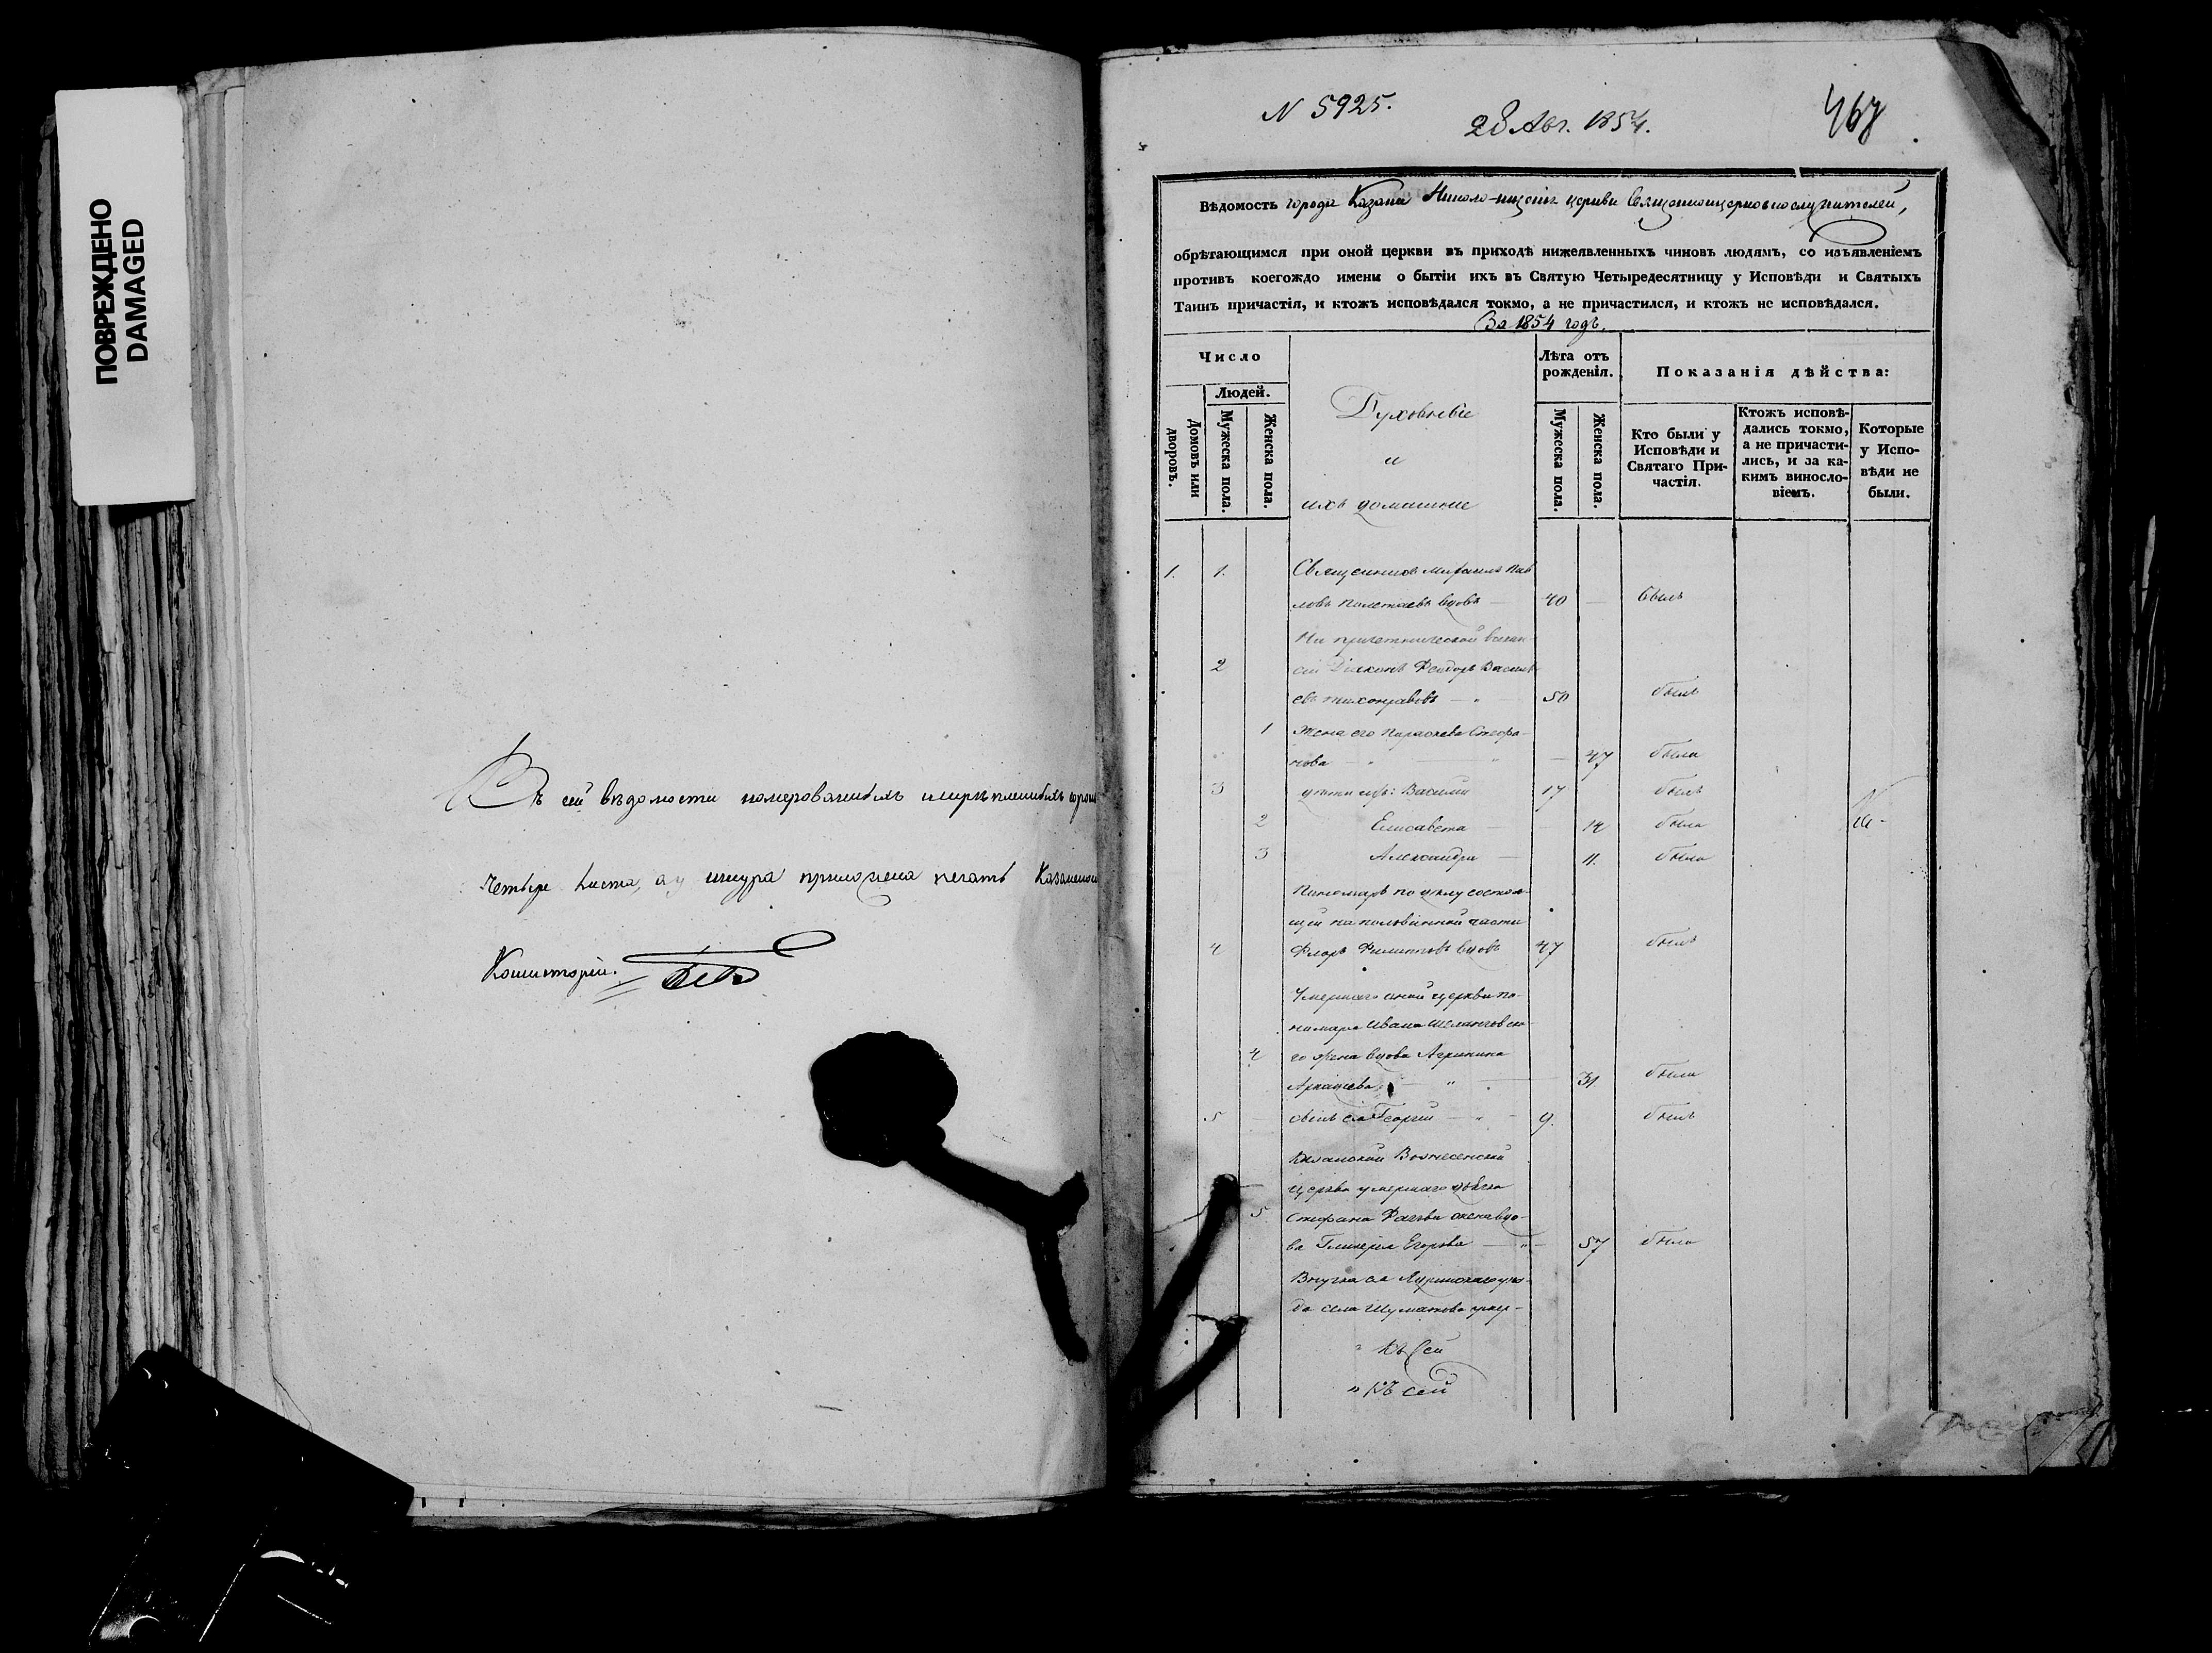 ПОВРЕЖДЕНО
DAMAGED
Въ сей вѣдомости номерованныхъ и скрѣпленныхъ сорокъ
четыре листа, а у шнура приложена печать Казанской
Консисторіи.
N 5925.
28 Авг. 1854.
467
Вѣдомость города Казани Николо-нищенск церкви священноцерковнослужителей,
обрѣтающимся при оной церкви въ приходѣ нижеявленныхъ чиновъ людямъ, со изъявленіемъ
противъ коегождо имени о бытіи ихъ въ Святую Четыредесятницу у Исповѣди и Святыхъ
Таинъ причастія, и ктожъ исповѣдался токмо, а не причастился, и ктожъ не исповѣдался.
За 1854 годъ.
Число
Людей.
Домовъ или дворовъ.
Мужеска пола.
Женска пола.
Духовные
и
ихъ домашніе
Лѣта отъ
рожденія.
Мужеска пола.
Женска пола.
Показанія дѣйства:
Кто были у
Исповѣди и
Святаго При-
частія.
Ктожъ исповѣ-
дались токмо,
а не причасти-
лись, и за ка-
кимъ винносло-
віемъ.
Которые
у Испо-
вѣди не
были.
1. 1. Священникъ Михаилъ Пав
ловъ Полетаевъ вдовъ — 40 — былъ
На причетнической вакан-
2 сіи Діаконъ Ѳеодоръ Василь
евъ Тихонравовъ — " 50 былъ
1 Жена его Параскева Стефа-
нова — " — 47 была
3 дѣти ихъ: Василій 17 былъ
2 Елисавета — — 14 была
3 Александра — 11. была
Пономарь по указу состоя
щій на половинной части
4 Флоръ Филипповъ вдовъ 47 былъ
Умершаго оной церкви по-
номаря Ивана
4 го жена вдова Агрипина
Аркадіева — " 31 была
5 сынъ ея Георгій — " 9. былъ
Казанской Вознесенской
церкви умершаго дьячка
5. Стефана жена вдо-
ва Гликерія Егорова — " 57 была
Внучка ея Лаишевскаго уѣз-
да села Шуматова умер-
" Къ сей
" Къ сей